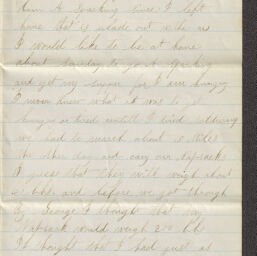 them A Sparking Since I left
home that is plade out with us
I would like to be at home
about Sunday to go A Sparking
and get my Supper for I am hungry
I never knew what it was to get
hungry or tired untill I tried soldiering
we had to march about 8 Miles
the other day and cary our napsacks
I guess that they will weigh about
lbs and before we got through
By George I thought that my
Napsack would weigh 200 lbs
I thought that I had just as